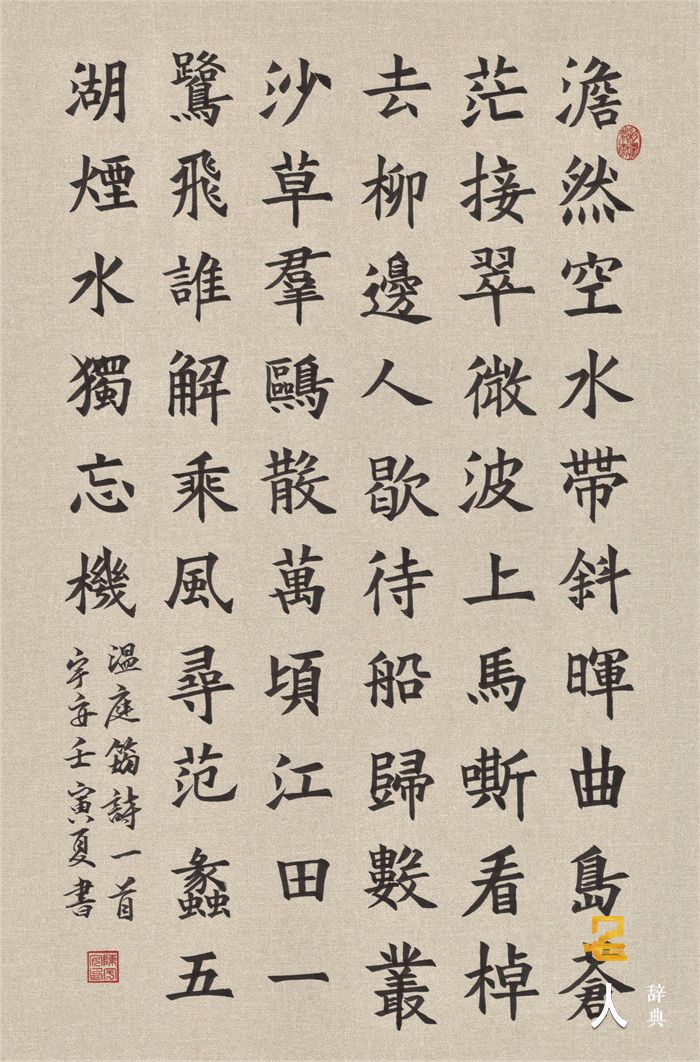 澹然空水帶斜暉曲島蒼
茫接翠微波上馬嘶看棹
去柳邊人歇待船歸數叢
沙草羣鷗散萬頃江田一
鷺飛誰解乘風尋范蠡五
湖煙水獨忘機
温庭筠詩一首
宇安壬寅夏書
名人
辞典